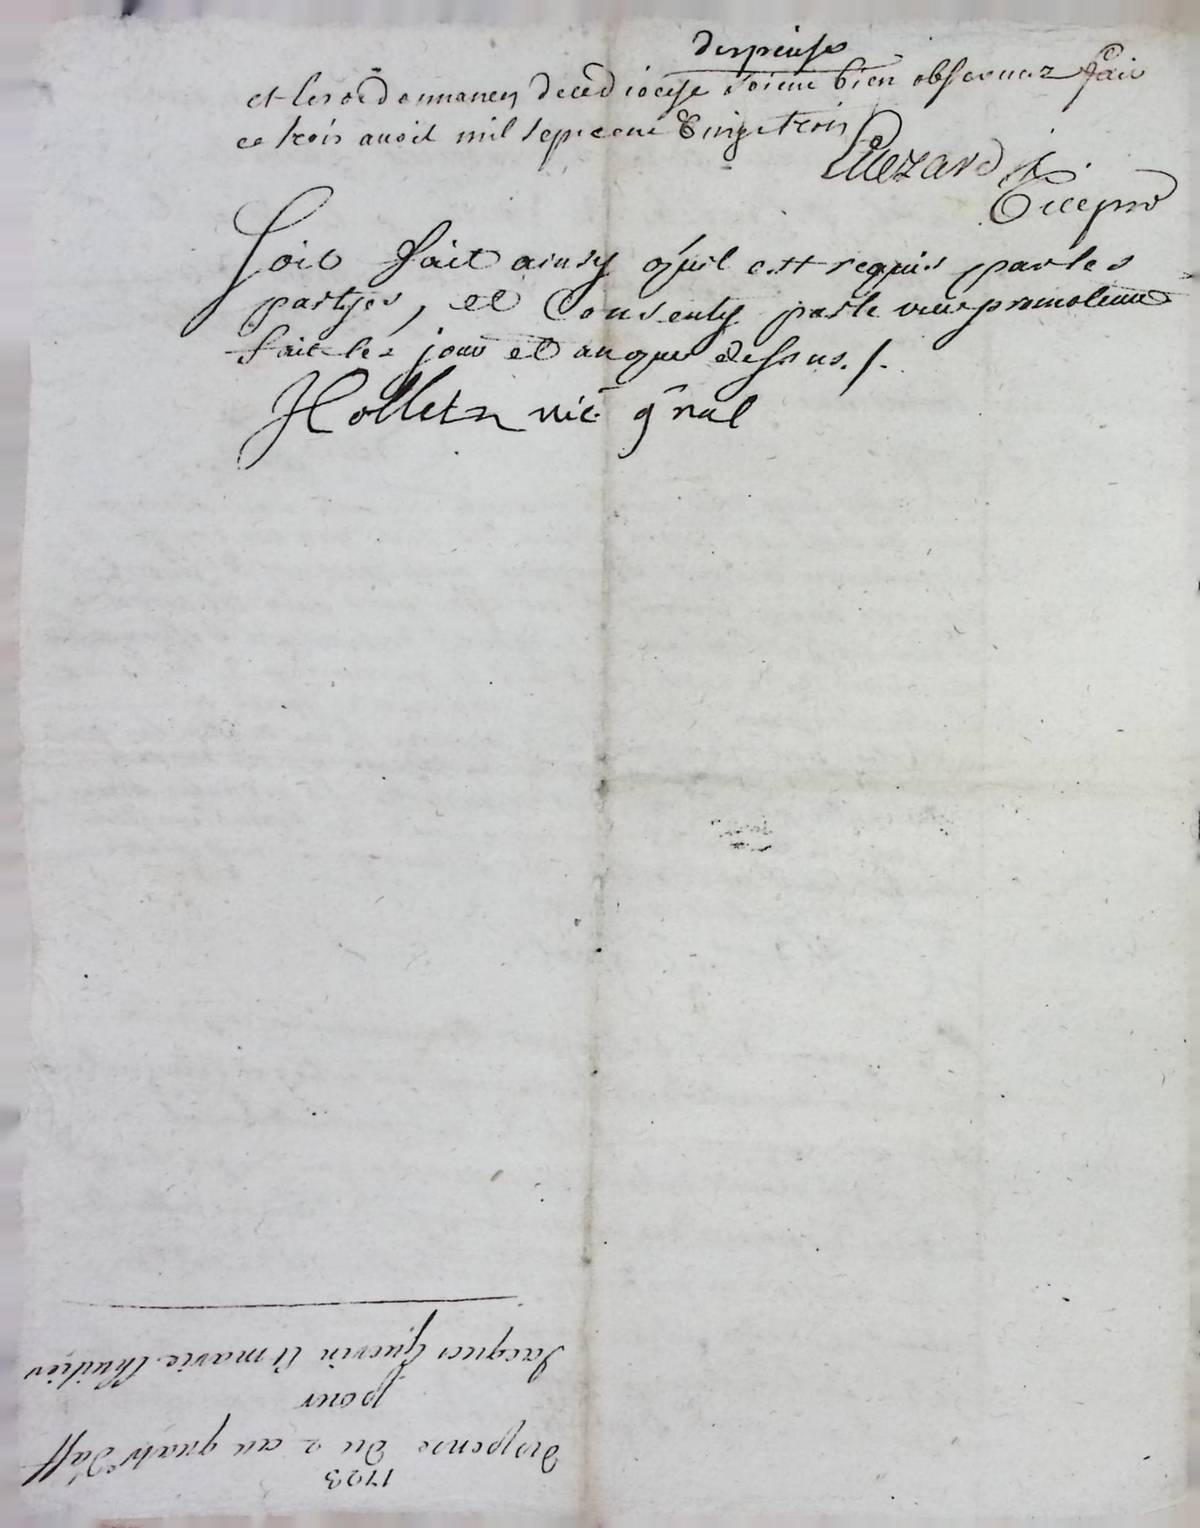 dispense
et les ordonnances de ce diocese soient bien observez fait
ce trois avoit mil sept cent vingt trois
Mezard
vice pro
soit fait ainsy qu'il est requis par les
partyes, et consenty par le vice promoteur
fait les jour et an que dessus ./.
Hollet vic gnal
1723
dispense du 2 au quatr d'aff
pour
Jacques Guerin et marie Lhuilier